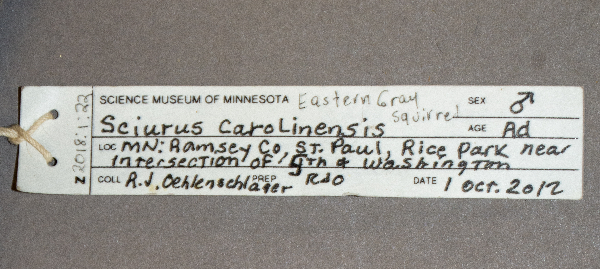 SCIENCE MUSEUM OF MINNESOTA Eastern Gray Squirrel SEX ♂
Sciurus Carolinensis AGE Ad
LOC MN: Ramsey Co, St. Paul, Rice Park near
intersection of 5th & Washington
COLL R.J. Oehlenschlager PREP RJO DATE 1 Oct. 2012
Z 2018:1:22